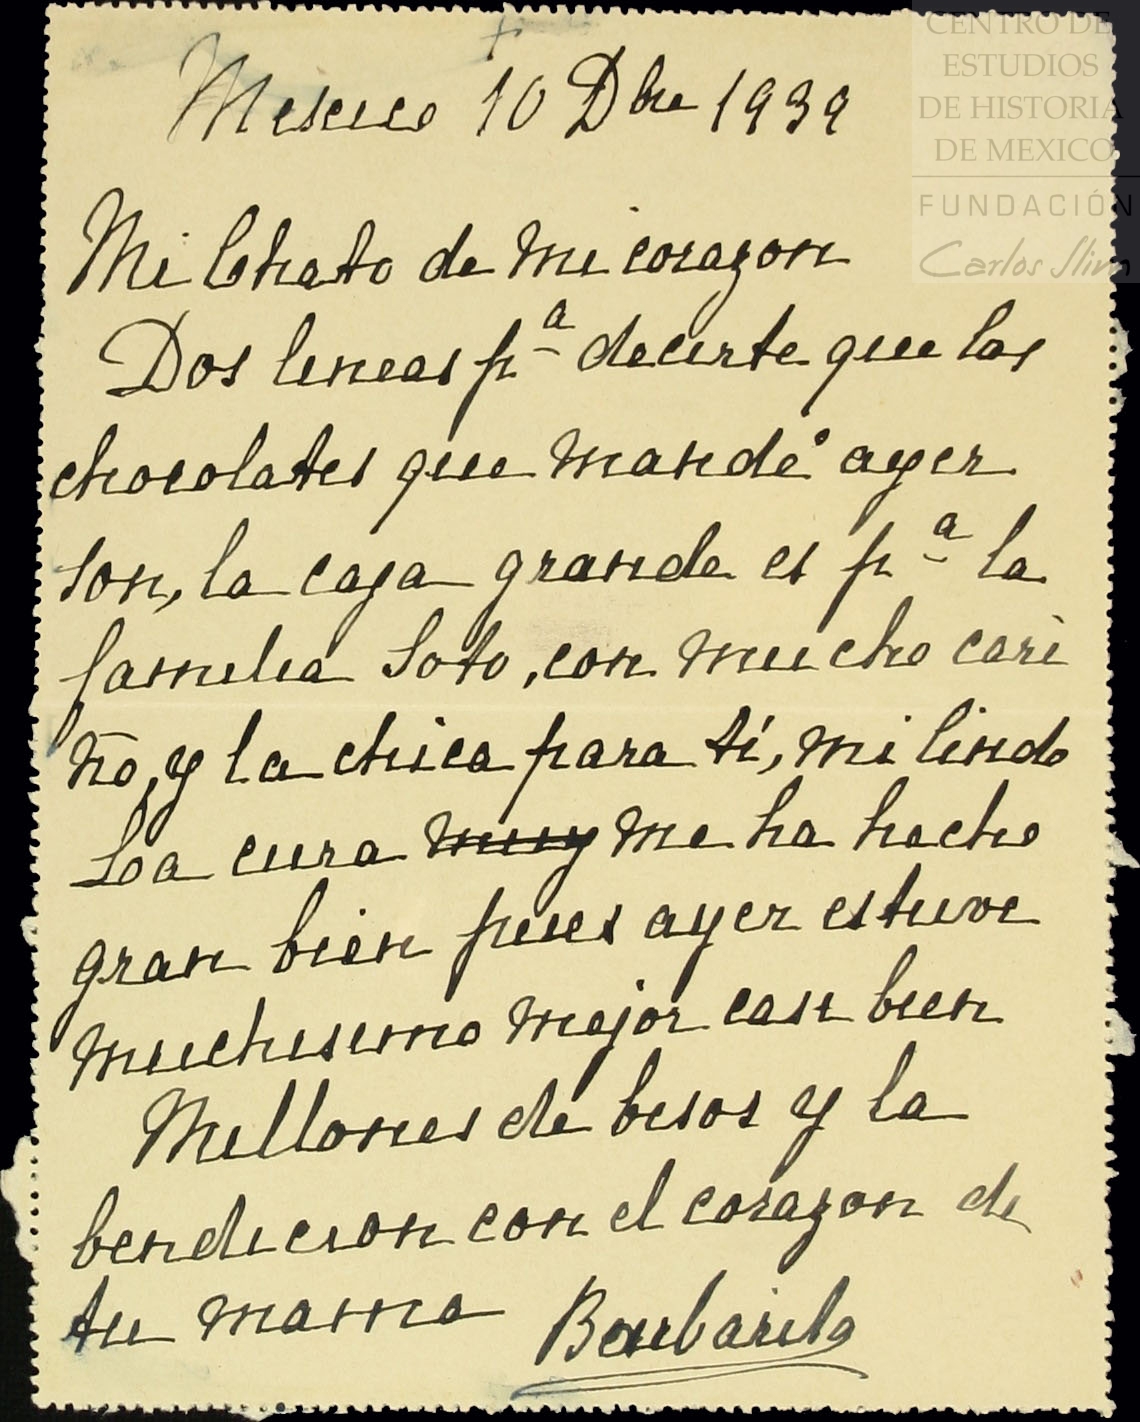 CENTRO DE
ESTUDIOS
DE HISTORIA
DE MEXICO
FUNDACIÓN
Carlos Slim
Mexico 10 Dbre 1939
Mi Chato de mi corazon
Dos lineas pª decirte que los
chocolates que mandé ayer
son, la caja grande es pª la
familia Soto, con mucho cari
ño, y la chica para tí, mi lindo
La cura muy me ha hecho
gran bien pues ayer estuve
muchisimo mejor casi bien
Millones de besos y la
bendicion con el corazon de
tu mama Barbarita